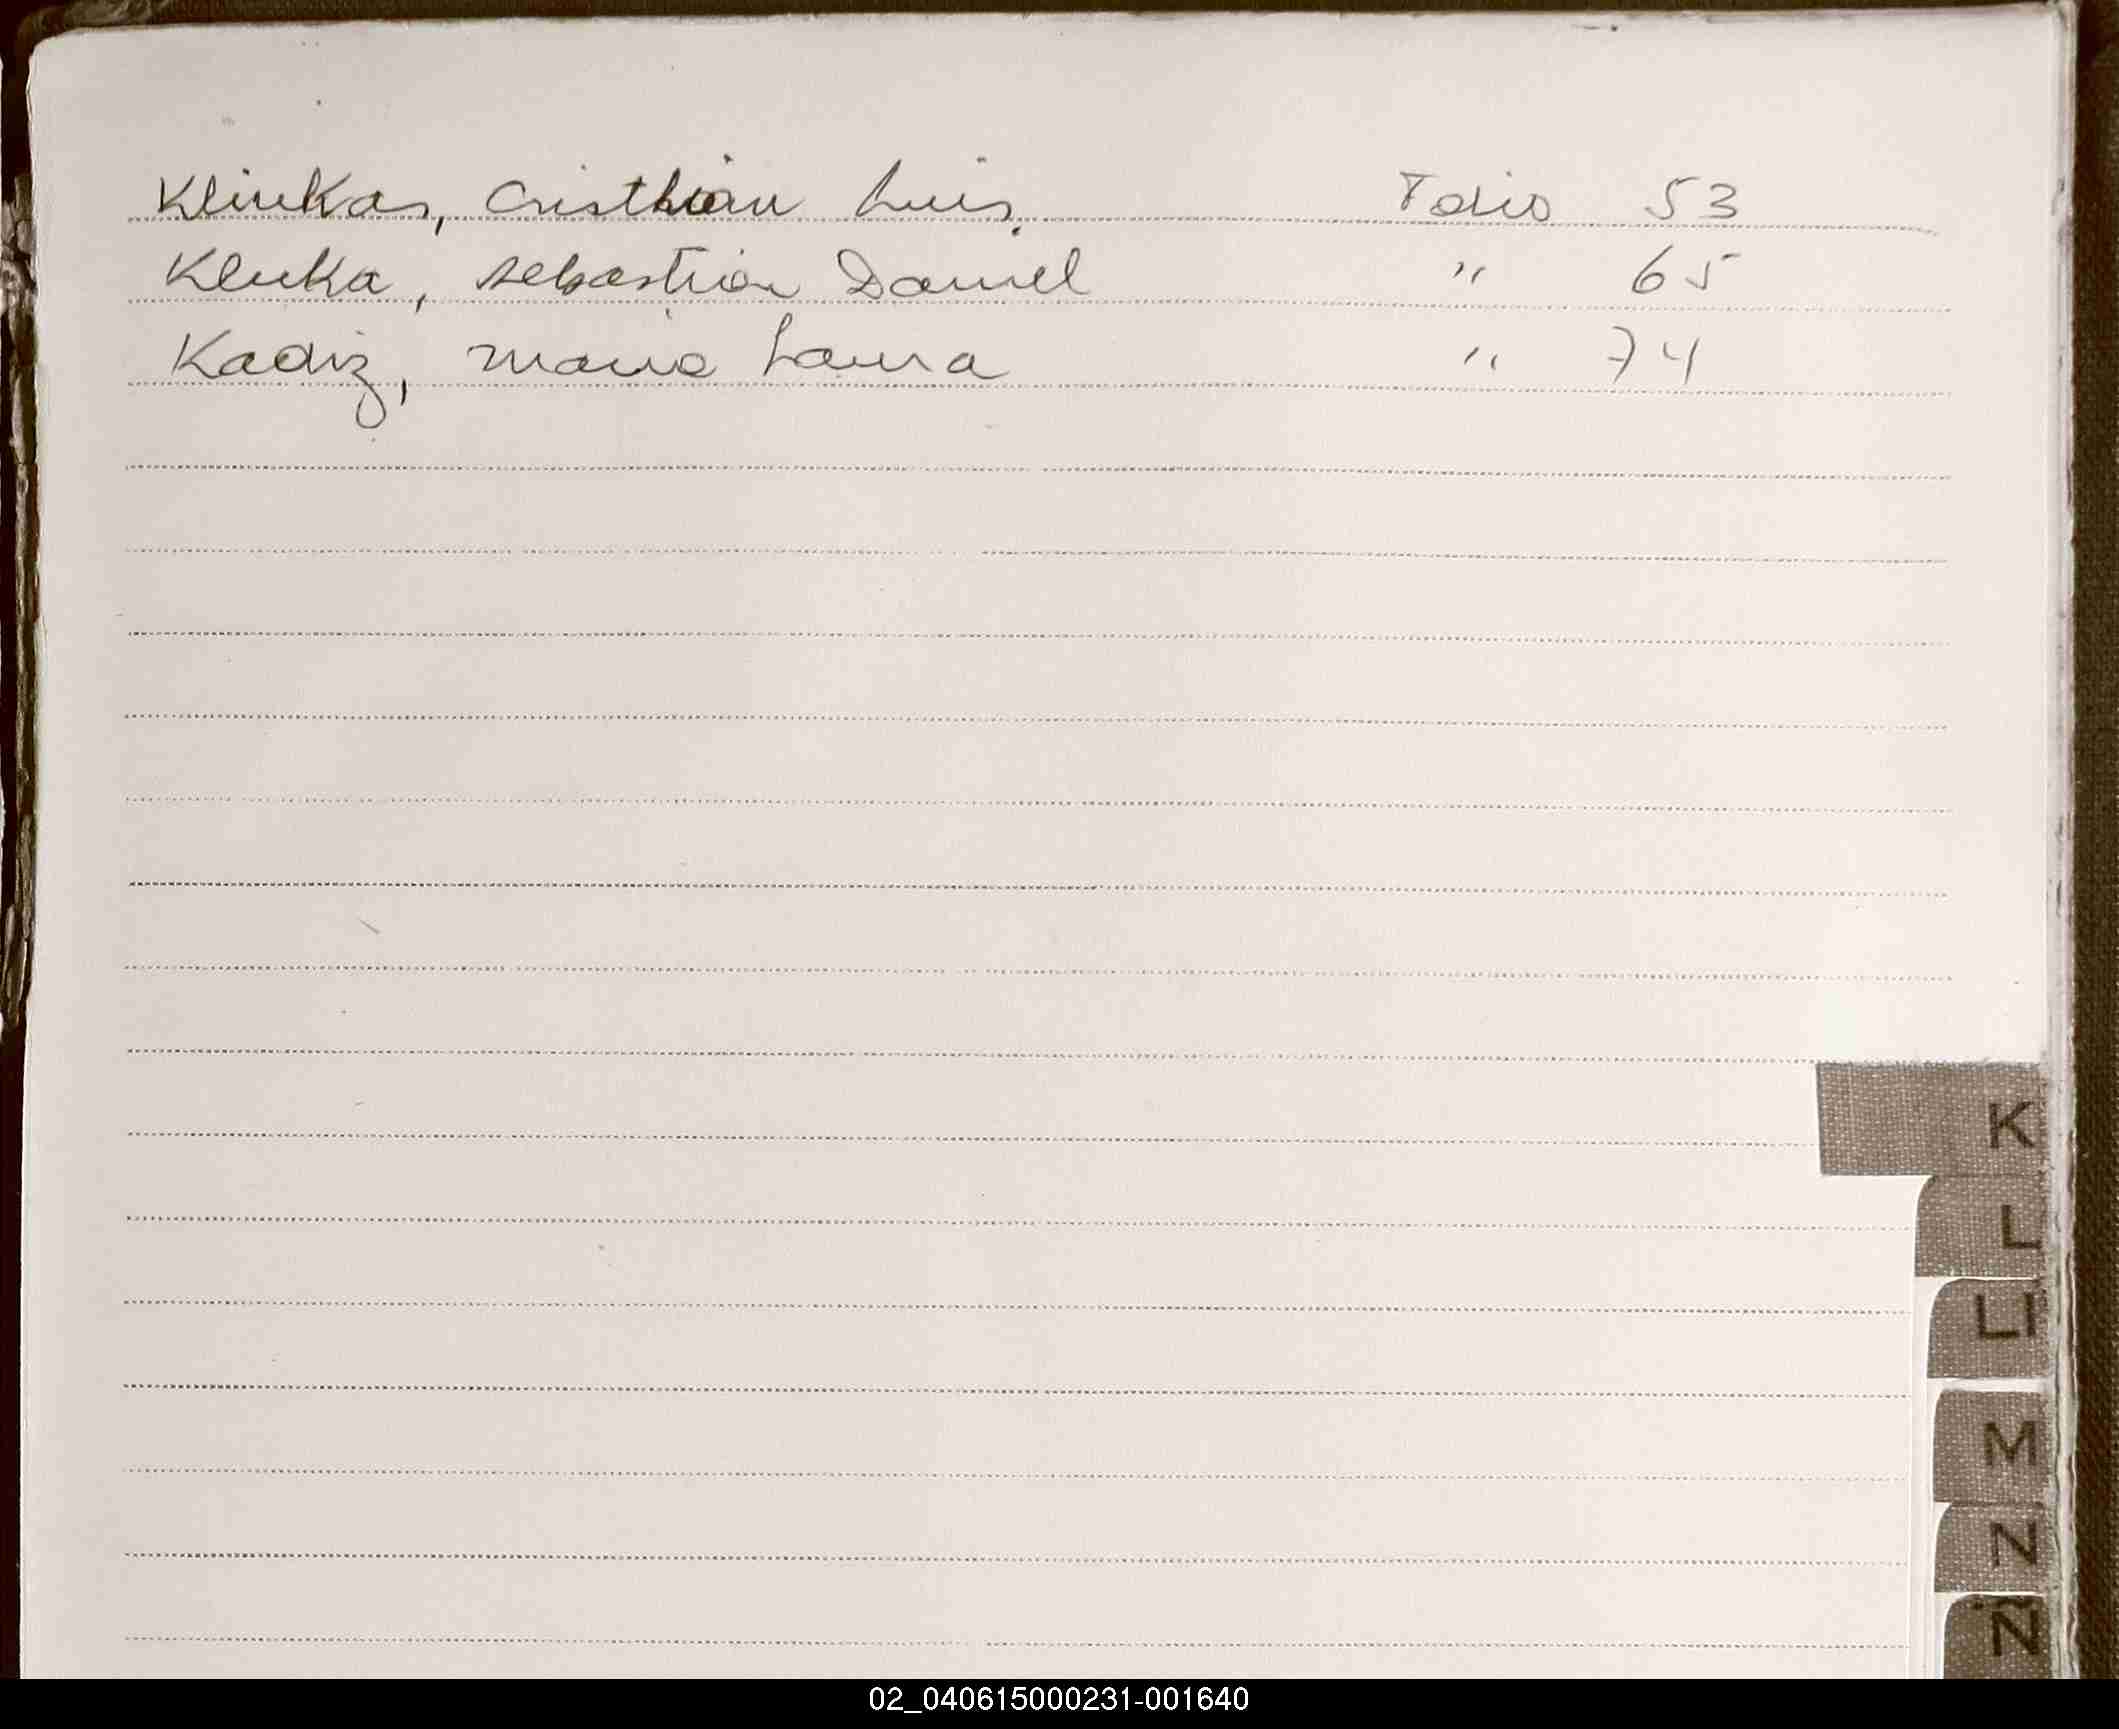 Klinkas, Cristhian Luis. Folio 53
Kluka, Sebastian Daniel " 65
Kadiz, Maria Laura " 74
K
L
Ll
M
N
Ñ
02_040615000231-001640